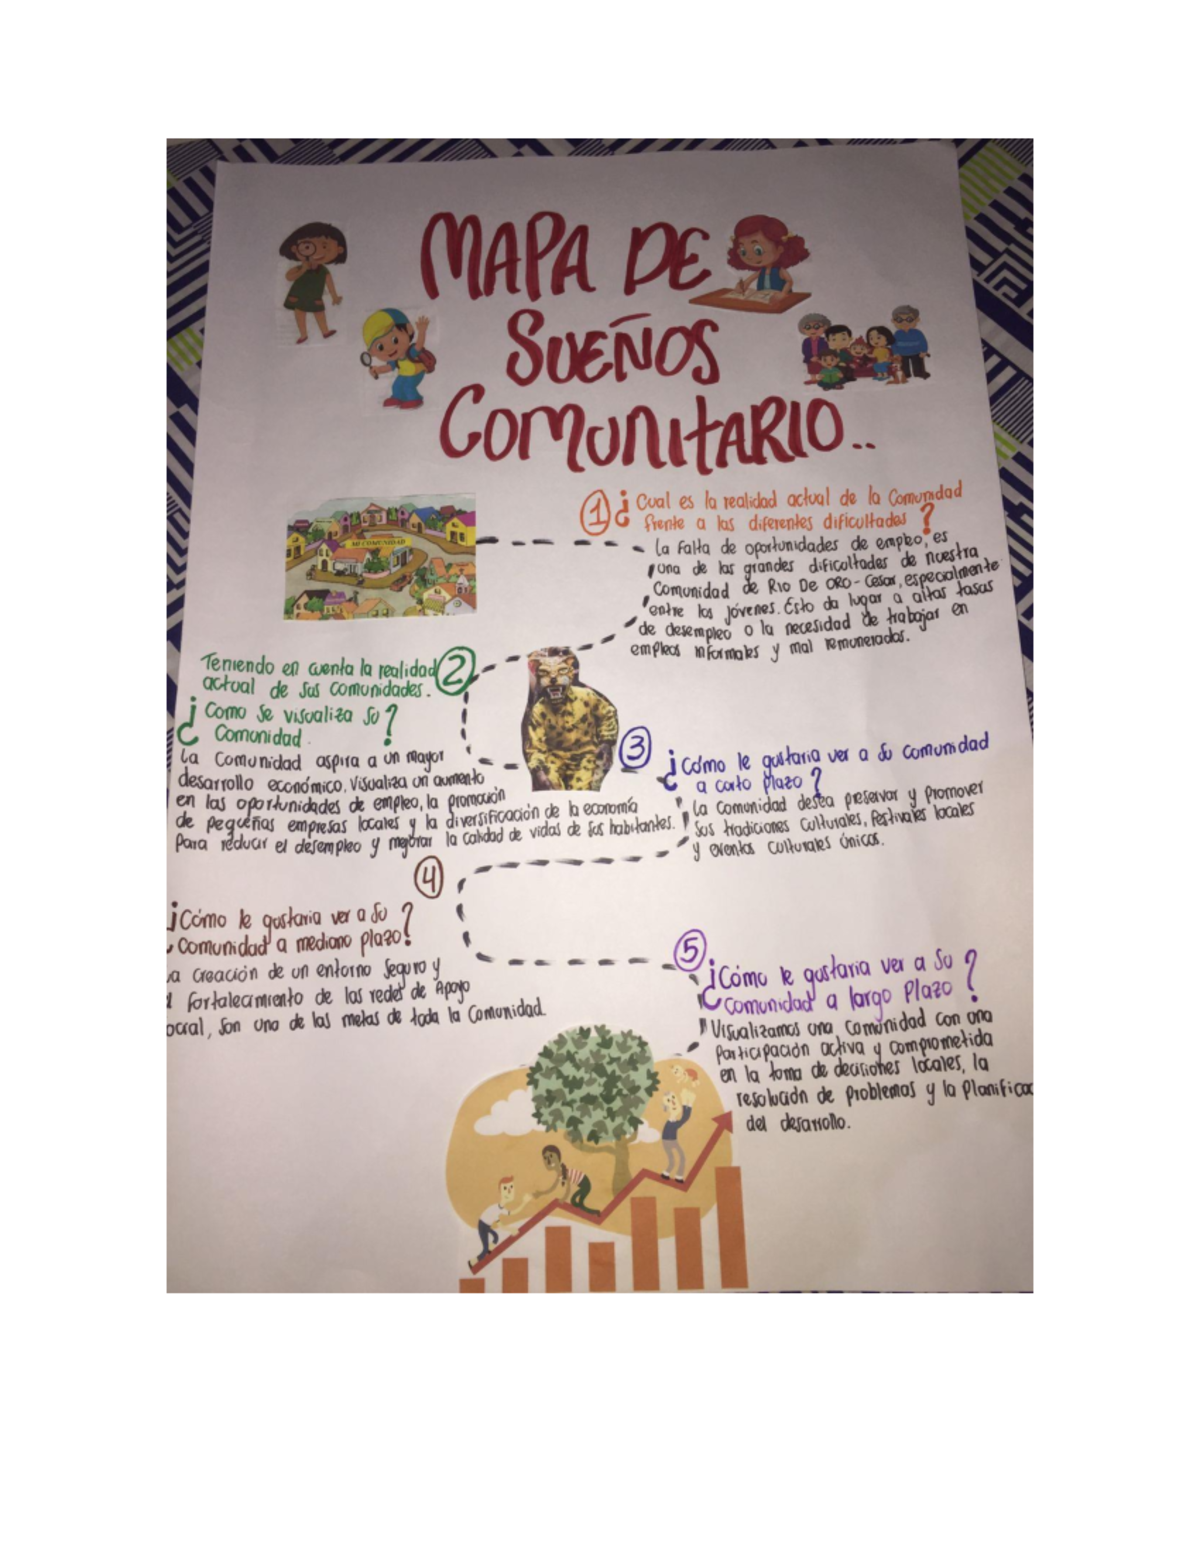 MAPA DE
SUEÑOS
COMUNITARIO..
MI COMUNIDAD
1 ¿Cual es la realidad actual de la Comunidad
frente a las diferentes dificultades?
La falta de oportunidades de empleo, es
una de las grandes dificultades de nuestra
Comunidad de RIO DE ORO-Cesar, especialmente
entre los jóvenes. Esto da lugar a altas tasas
de desempleo o la necesidad de trabajar en
empleos informales y mal remunerados.
Teniendo en cuenta la realidad 2
actual de sus comunidades.
¿Como se visualiza su
Comunidad.?
La Comunidad aspira a un mayor
desarrollo económico. Visualiza un aumento
en las oportunidades de empleo, la promoción
de pequeñas empresas locales y la diversificación de la economía
Para reducir el desempleo y mejorar la calidad de vidas de sus habitantes.
3 ¿Cómo le gustaria ver a su comunidad
a corto plazo?
La comunidad desea preservar y promover
sus tradiciones culturales, festivales locales
y eventos culturales únicos.
4
¿Cómo le gustaria ver a su
Comunidad a mediano plazo?
a creación de un entorno seguro y
l fortalecimiento de las redes de Apoyo
ocial, son una de las metas de toda la Comunidad.
5 ¿Cómo le gustaria ver a su
Comunidad a largo Plazo?
Visualizamos una comunidad con una
Participación activa y comprometida
en la toma de decisiones locales, la
resolución de problemas y la Planificac
del desarrollo.